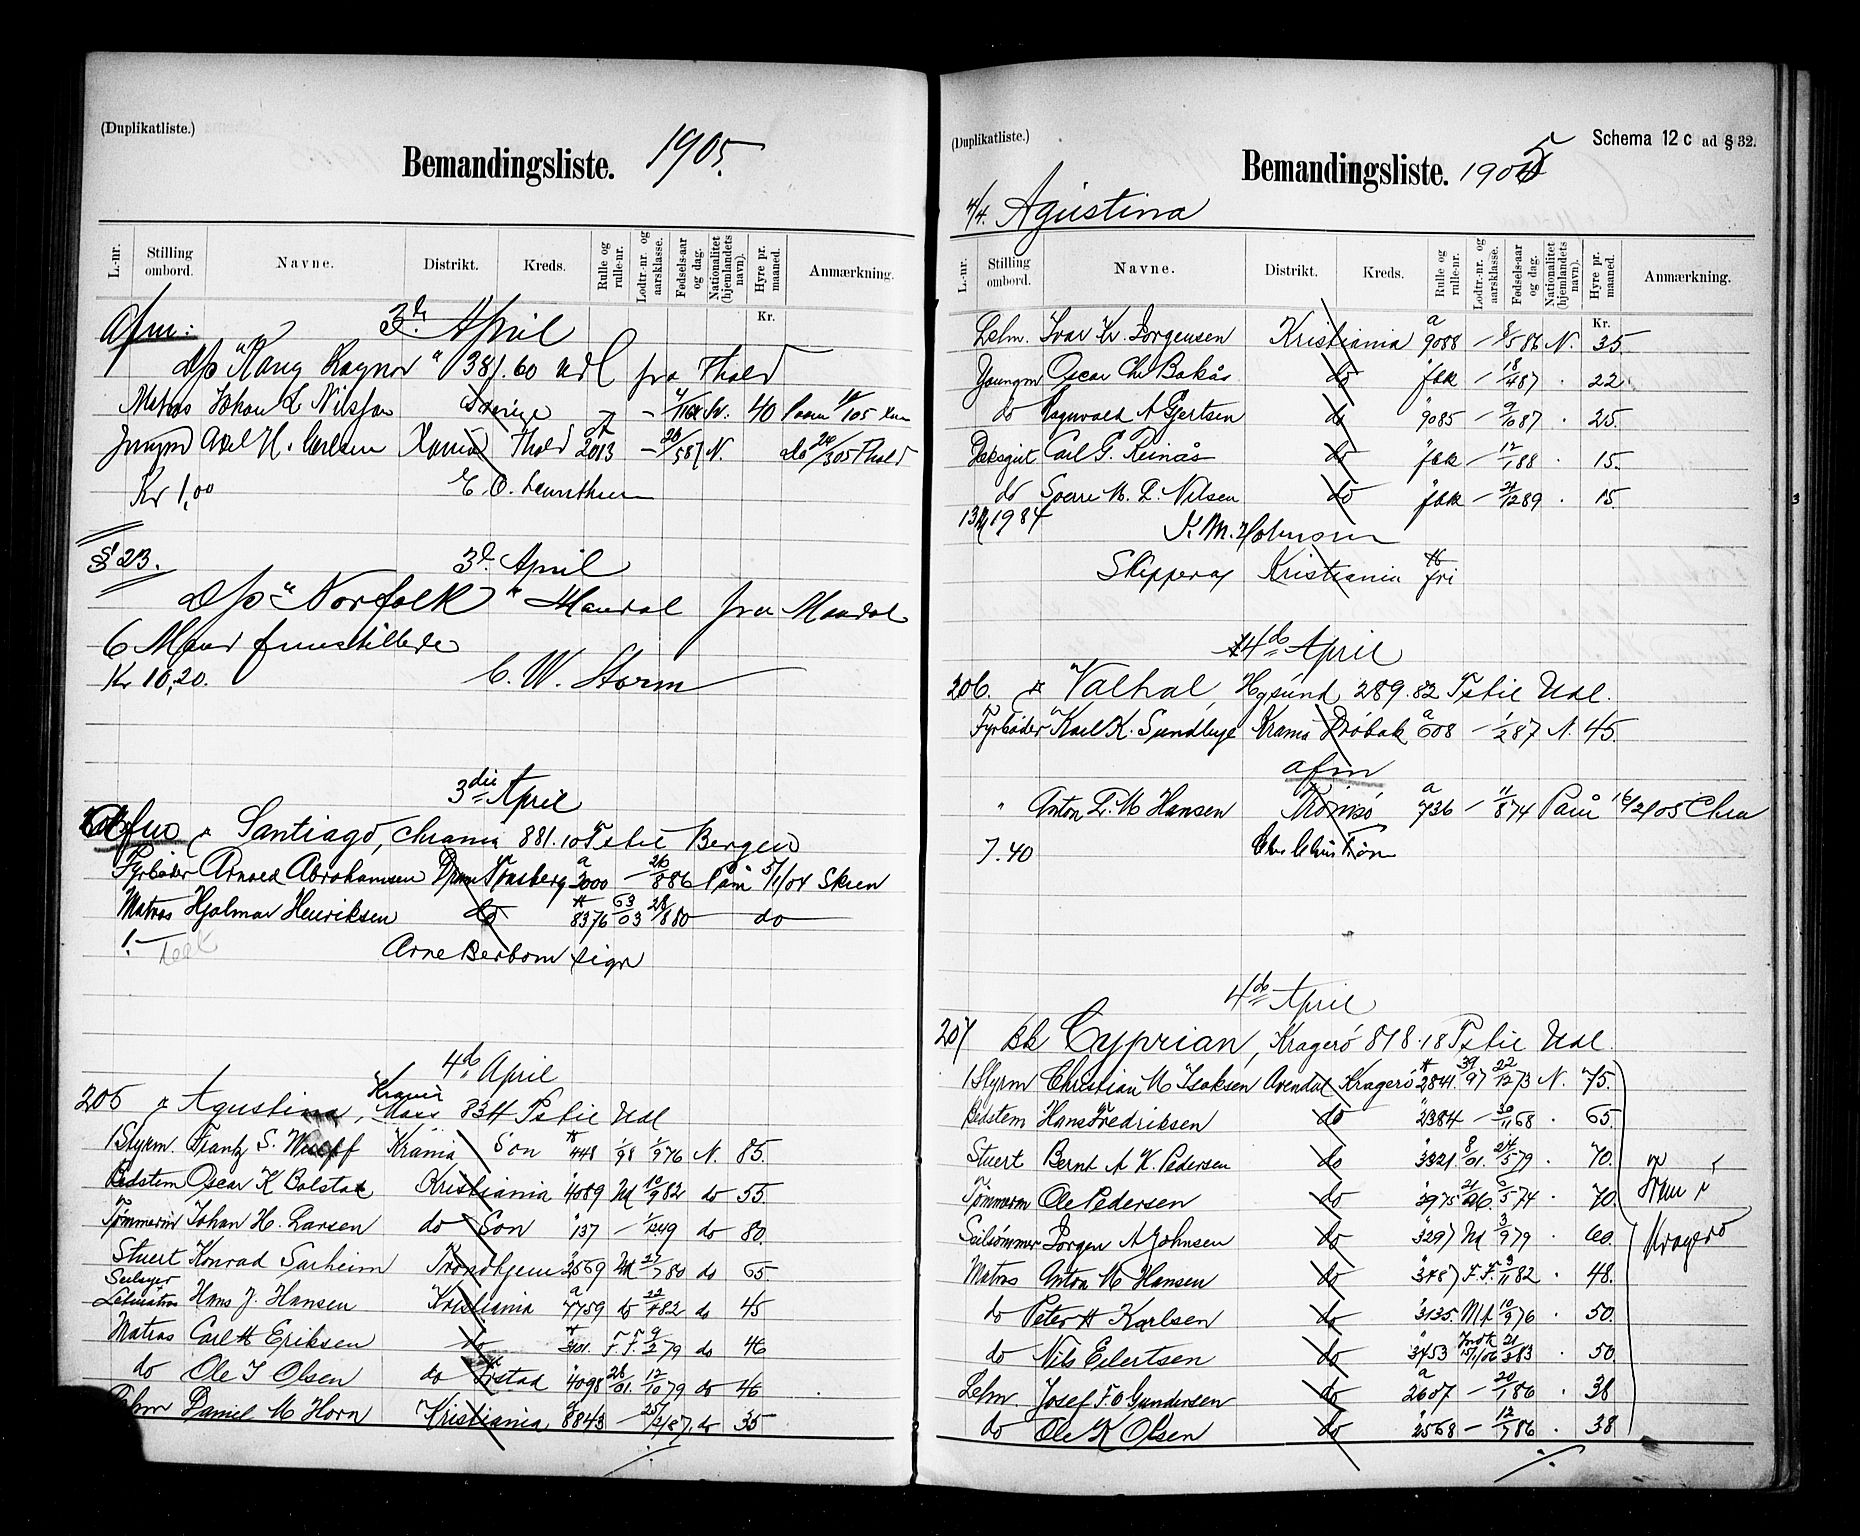 (Duplikatliste.)
Bemandingsliste. 1905.
L.-nr. Stilling ombord. Navne. Distrikt. Kreds. Rulle og rulle-nr. Lodtr.-nr. og aarsklasse. Fødsels-aar og dag. Nationalitet (hjemlandets navn). Hyre pr. maaned. Anmærkning.
Kr.
Afm: 3die April
D/p "Kong Ragnar" 381.60 Udl fra Thold
Matros Johan L Nilsson Sverige 40
Jungm Axel H. Carlsen Xania Thold 2013 N. do 24/3 05 Thold
Kr 1,00
§ 23. 3d. April
D/p "Norfolk" Mandal fra Mandal
6 Mand
Kr 10,20. C. W. Storm
3die April
Afm Santiago, Chrania 881.10 Tstie Bergen
Fyrbøder Arnold Abrahamsen Dram Tønsberg a 3000 – 26/8 86 Pam 5/1/04 Skien
Matros Hjalmar Henriksen do H 8376 63/03 28/8 80 do
Arne Berbom sign
4de April
205 Agustina, Krania Moss 834 Tstie Udl
1Styrm. Frantz S. Wulff Krania Son H 448 1/98 1/9 76 N. 85.
Bedstem Oscar K Bolstad Kristiania 4089 M 10/9 82 do 55
Tømmerm Johan H. Larsen do Son 137 – 1/12 49 do 80.
Stuert Konrad Sarheim Trondhjem 2569 M 27/7 80 do 65
Seilsyer
Letmatros Hans J. Hansen Kristiania a 7759 do 22/7 82 do 45
Matros Carl H Eriksen do H 3101. F.F. 9/2 79 do 46
do Ole I Olsen do Ørstad 4098 26/01. 12/10 79 do 46
Lehm Daniel M Horn Kristiania a 8843 – 25/12/87. do 35
(Duplikatliste.)
Schema 12 c ad § 32.
Bemandingsliste. 1905
4/4. Agustina
L.-nr. Stilling ombord. Navne. Distrikt. Kreds. Rulle og rulle-nr. Lodtr.-nr. og aarsklasse. Fødsels-aar og dag. Nationalitet (hjemlandets navn). Hyre pr. maaned. Anmærkning.
Kr.
Lelm. Ivar Kr. Jorgensen Kristiania a 9088 – 8/5 86 N. 35
Youngm Oscar Chr Bakås do fak – 18/4 87 . 22
do Ragnvald A Gjertsen do " 9085 – 9/10 87 . 25.
Dæksgut Carl G. Reinås do " fak – 12/1 88 . 15.
do Sverre M. L. Nilsen do " fak – 21/12 89 . 15.
K. M. Johnsen
Skipper af Kristiania H fri
4de April
206. "Valhal, Hgsund 289.82 Tstie Udl.
Fyrbøder Karl K. Sundbye Krania Drøbak a 608 – 1/2 87 N. 45.
afm
" Anton L. M Hansen Tromsø a 736 – 11/8 74 Pam 16/2/05 Chra
7.40
4de April
207 Bk Cyprian, Kragerö 878.18 Tstie Udl.
1Styrm Christian M Isaksen Arendal Kragerö H 2841 39/97 22/12 73 N. 75.
Bedstem Hans Fredriksen do " 2384 – 30/11 68 . 65.
Stuert Bernt A K. Pedersen do " 3321. 8/01. 24/5 79 . 70.
Tømmerm Ole Pedersen do " 3975 21/96. 6/5 74 . 70.
Seilsømmer Jorgen A Johnsen do " 3297 M 3/9 79 . 60.
Kragerö
Matros Anton M Hansen do " 3487 F.F. 3/11 82 . 48.
do Peter H Karlsen do " 3135. Mf 10/9 76 . 50.
do Nils Eilertsen do " 3453 21/3 83 . 50.
Lelm. Josef F. O Gundersen do a 2607 – 20/1 86 . 38
do Ole K Olsen do " 2568 – 12/7 86 . 38